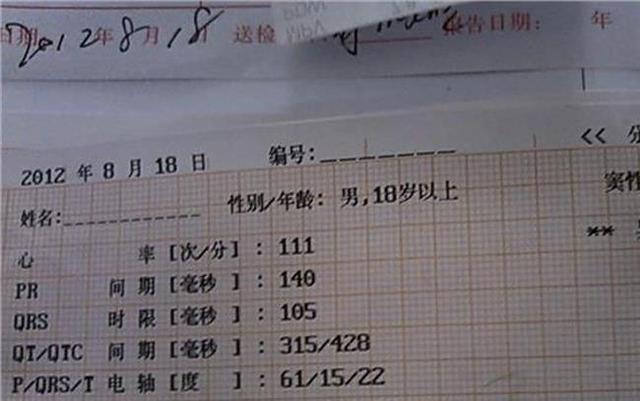 日期 2012年8月18 送检 报告日期: 年
<< 分
2012 年 8 月 18 日 编号:_______
姓名:___________ 性别/年龄: 男,18岁以上
窦性
心 率 [次/分] : 111
**
PR 间 期 [毫秒 ] : 140
QRS 时 限 [毫秒 ] : 105
QT/QTC 间 期 [毫秒 ] : 315/428
P/QRS/T 电 轴 [度 ] : 61/15/22